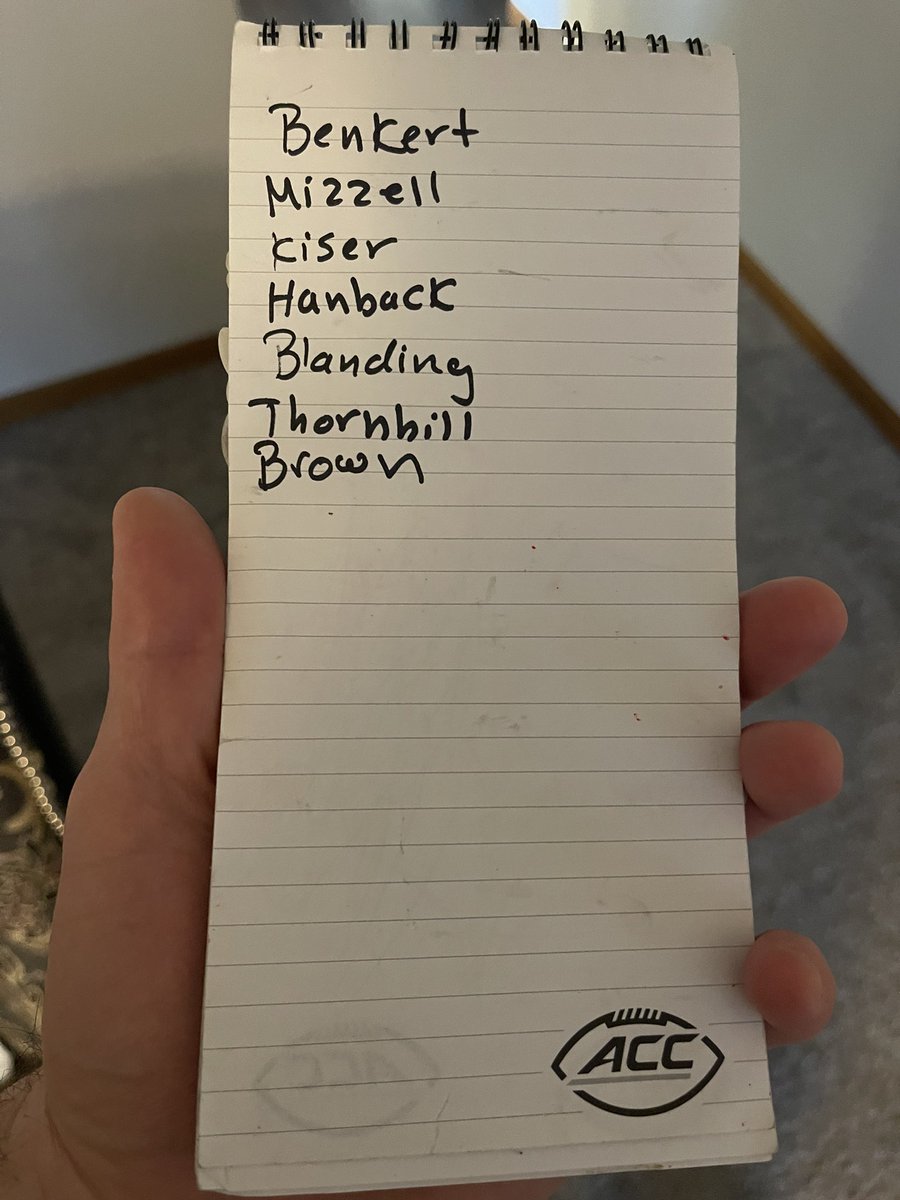 Benkert
Mizzell
Kiser
Hanback
Blanding
Thornhill
Brown
ACC